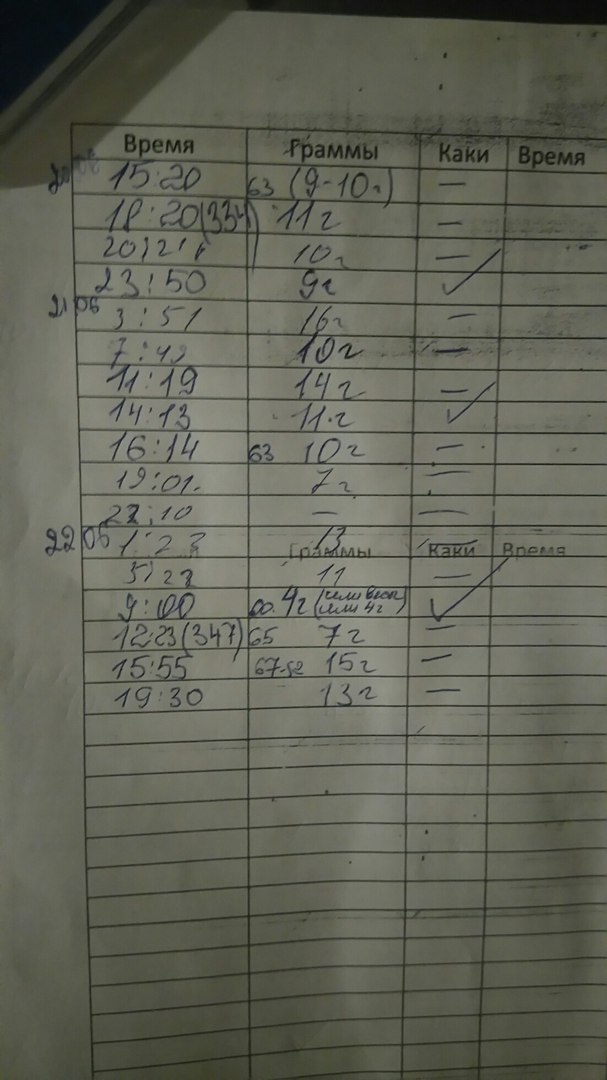 Время Граммы Каки Время
15:20 63 (9-10г) —
18:20 (334) 11г —
10г —
23:50 9г ✓
21 06 3:51 16г —
10г —
11:19 14г —
14:13 11г ✓
16:14 63 10г —
19:01 7г —
10 — —
22 06 13 —
Граммы Каки Время
11 —
9:00 4г ✓
12:23 (347) 65 7г —
15:55 67-52 15г —
19:30 13г —